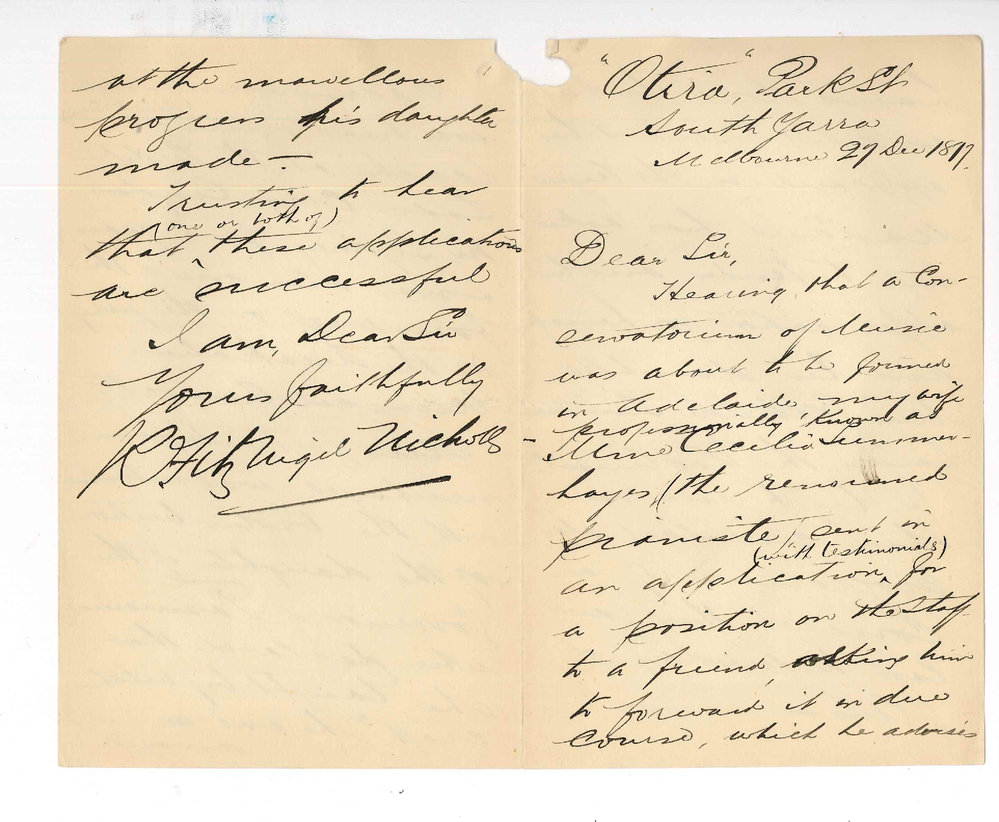 "Otira", Park St
South Yarra
Melbourne 27 Dec 1897.
Dear Sir,
Hearing that a Con-
servatorium of Music
was about to be formed
in Adelaide my wife
professionally known as
Mme Cecilia Summer-
hayes (the renowned
pianiste) sent in
(with testimonials)
an application, for
a position on the Staff
to a friend, asking him
to forward it in due
course, which he advises
at the marvellous
progress his daughter
made —
Trusting to hear
(one or both of)
that these applications
are successful
I am, Dear Sir
Yours faithfully
R FitzNigel Nicholls